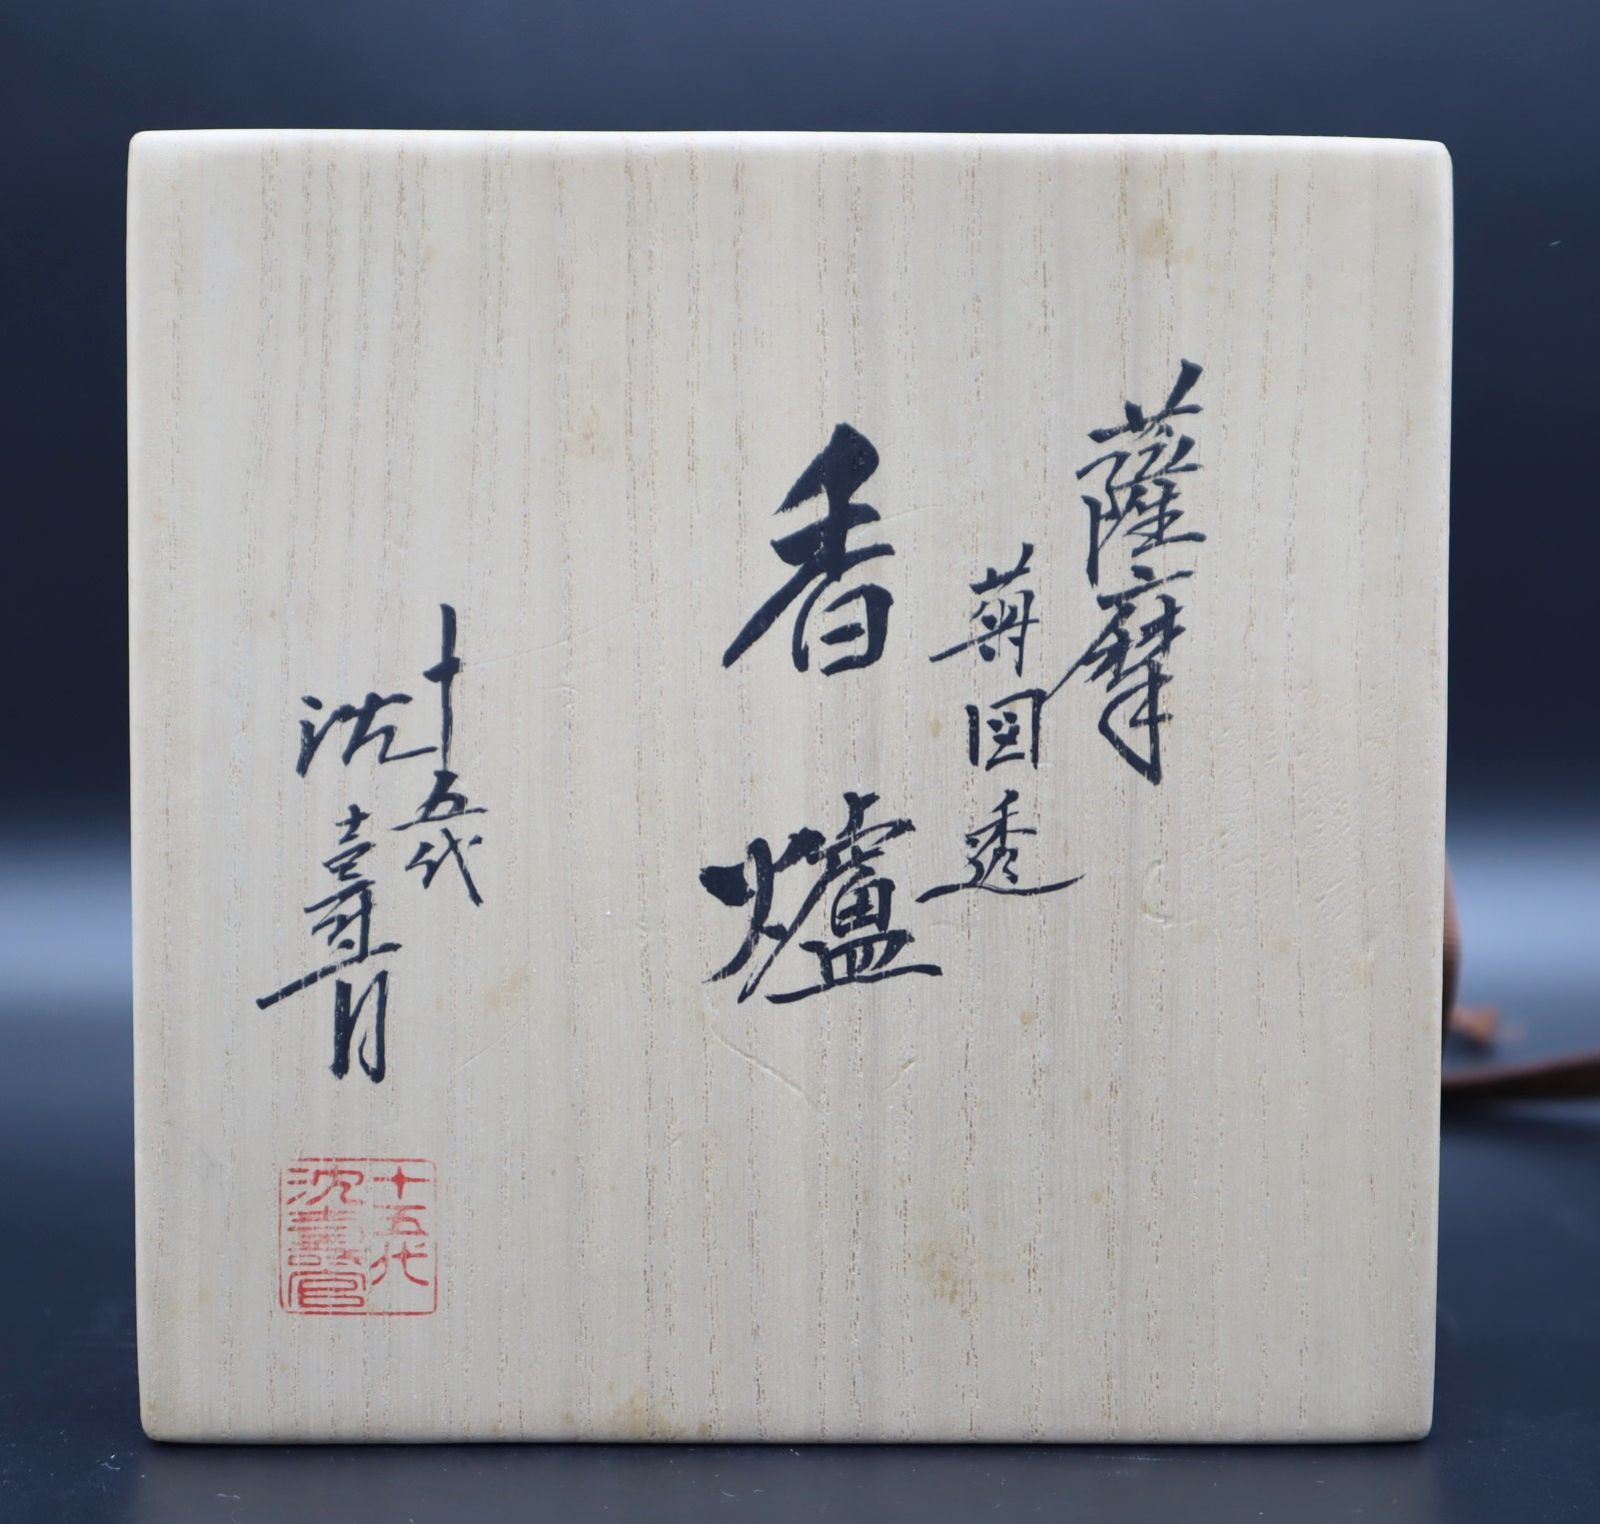 薩摩
図透
香爐
十五代
沈壽官
十五代
沈壽官